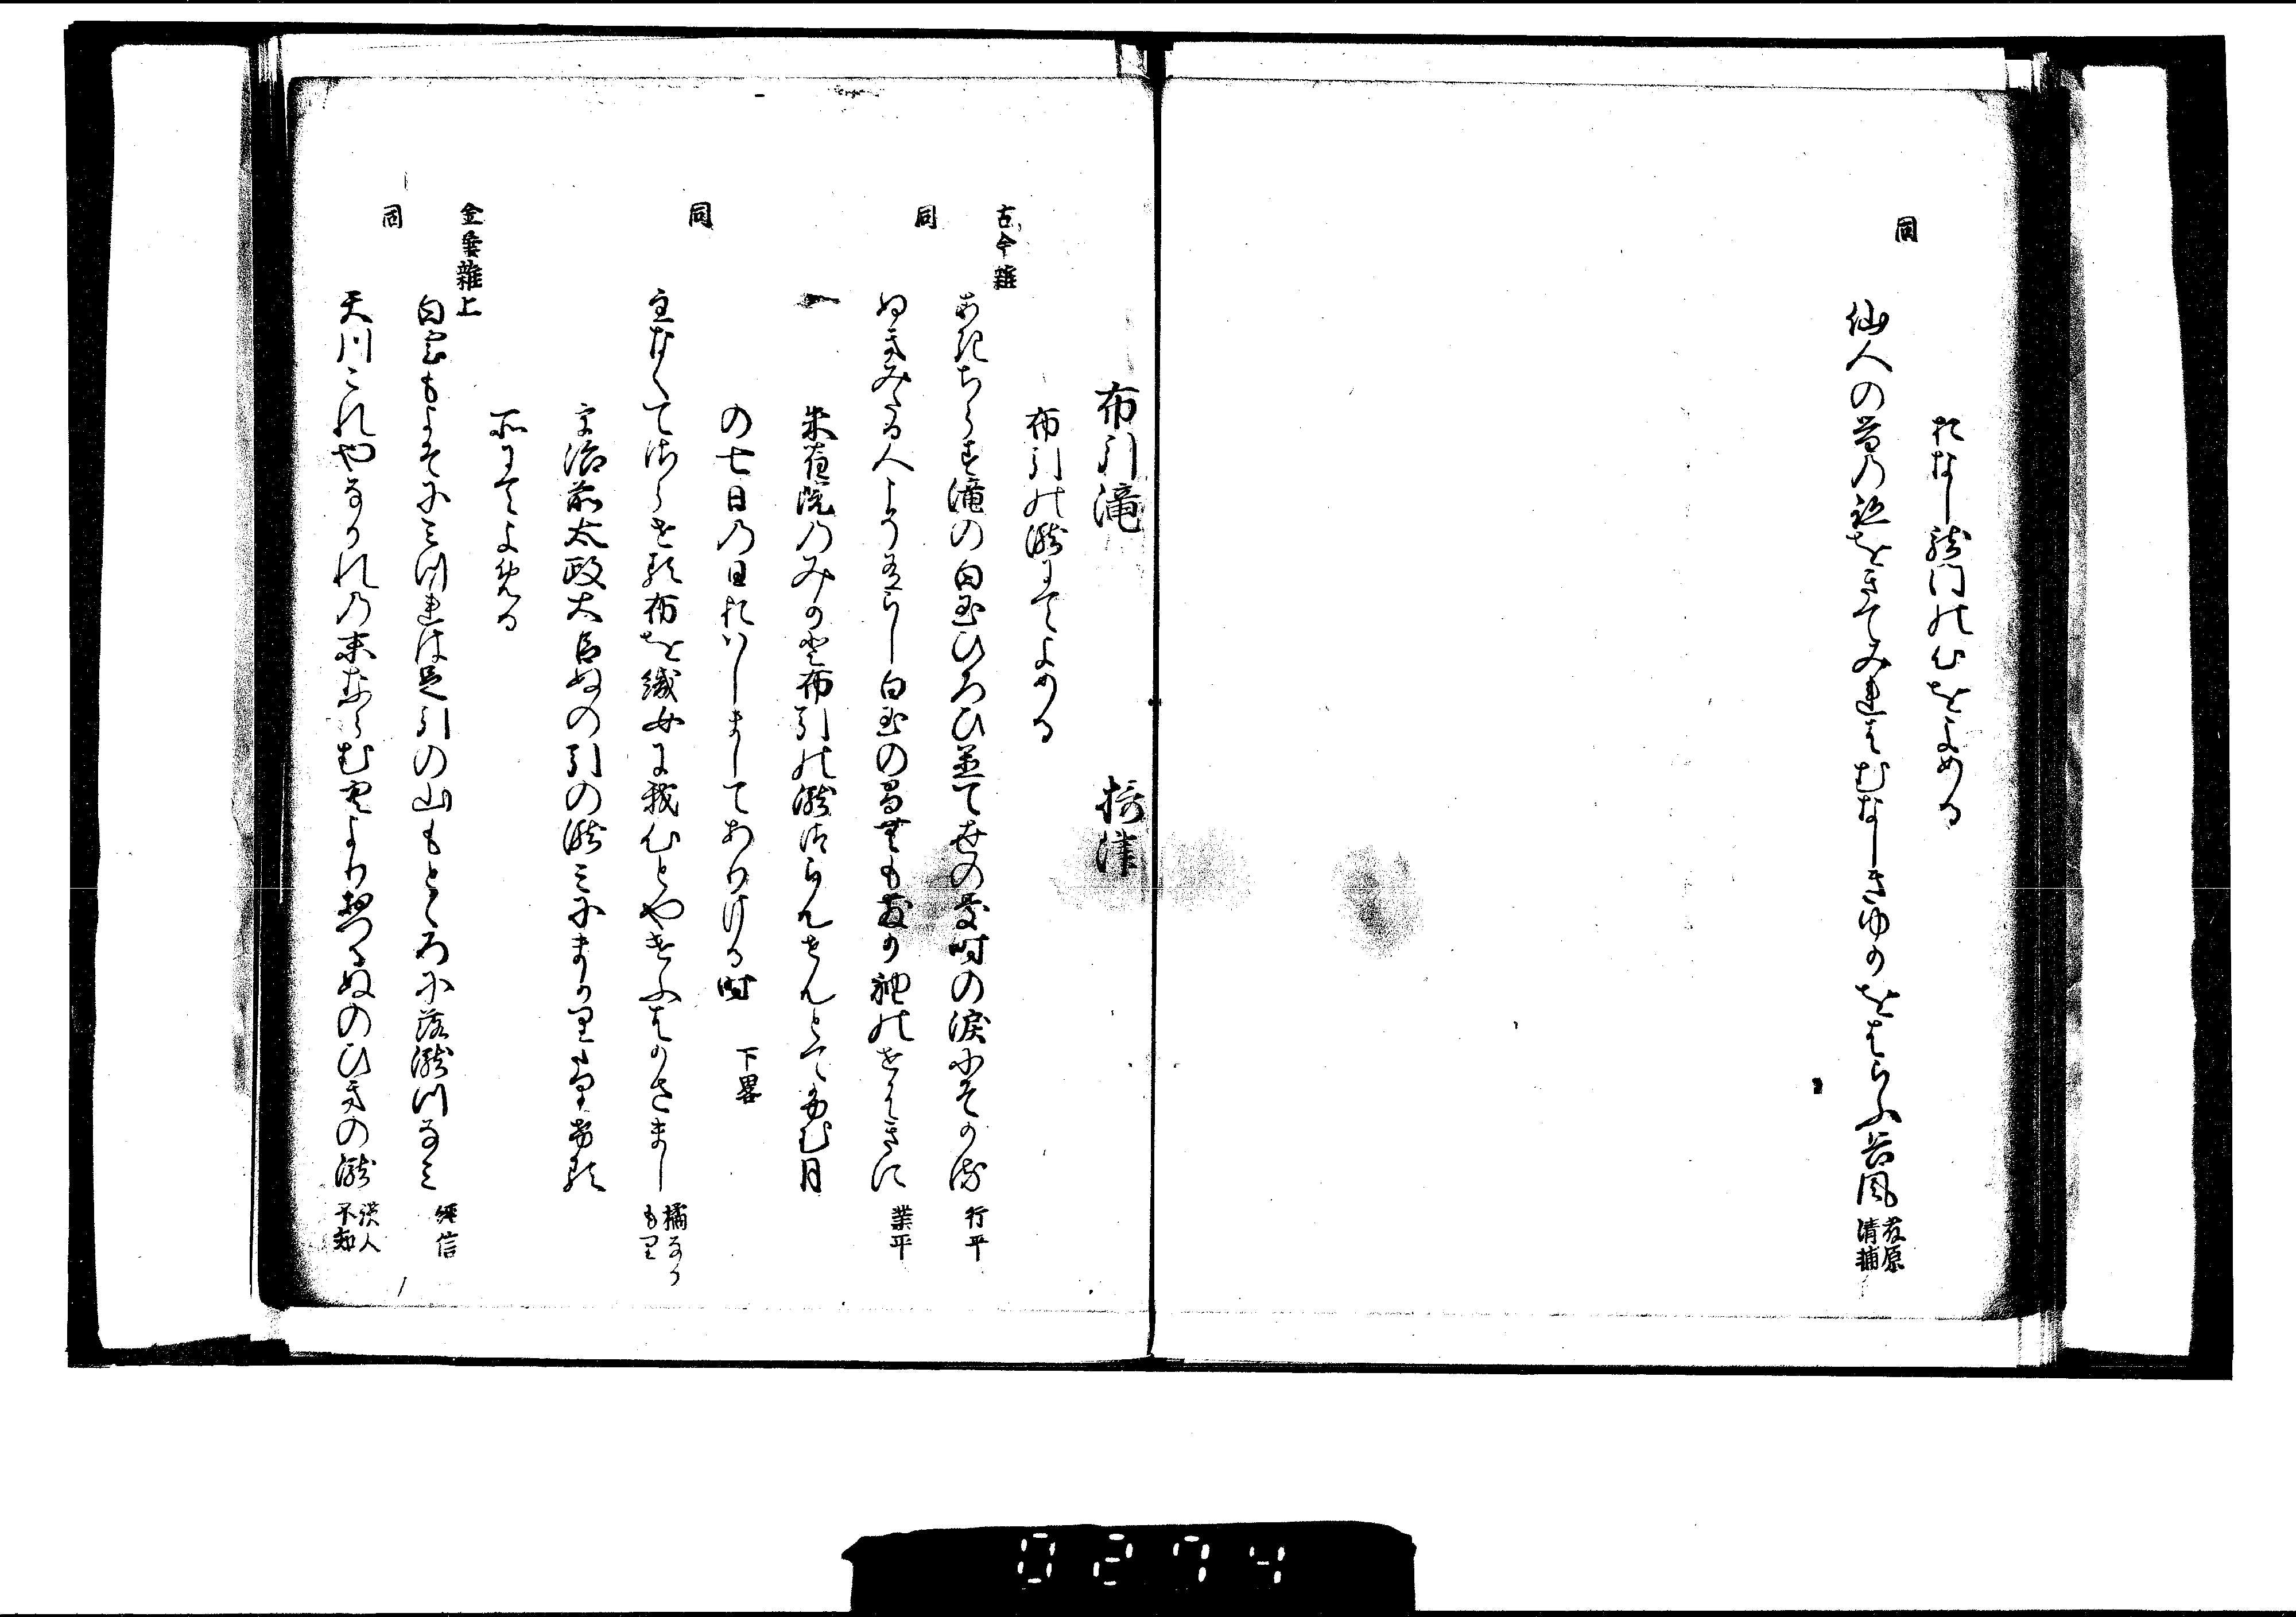 おなし龍門の心をよめる
同
仙人の昔の跡をきてみれはむなしきゆかをはらふ谷風 藤原清輔
布引滝 摂津
布引の瀧にてよめる
古今雑
あれちらす滝の白玉ひろひ置て世の憂時の涙にそかる 行平
同
ぬきみたる人こそ有らし白玉の間無もちるか袖のせはきに 業平
朱雀院のみかと布引の瀧御らんせんとてふむ月
の七日の日おはしましてありける時 下略
同
主なくてさらせる布を織女に我心とやけふはかさまし 橘なかもり
宇治前太政大臣ぬの引の瀧みにまかりける
所にてよめる
金葉雑上
白雲もよそにみつれは足引の山もとゝろに落瀧川なみ 経信
同
天川これやなかれの末ならむ空より落るぬのひきの瀧 読人不知
0274